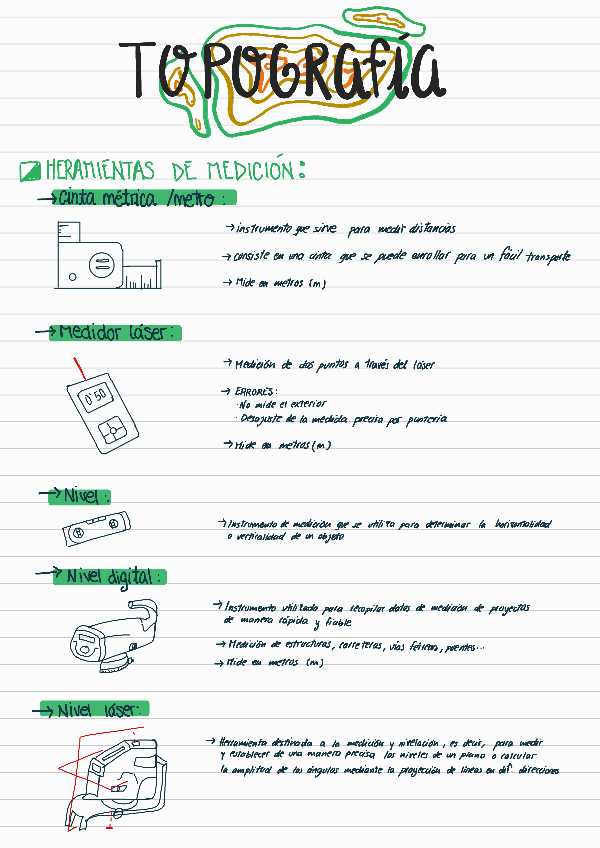 TOPOGRAfíA
HERAMIENTAS DE MEDICIÓN:
→ Cinta métrica /metro :
→ instrumento que sirve para medir distancias
→ consiste en una cinta que se puede enrollar para un fácil transporte
→ Mide en metros (m)
→ Medidor láser:
0'50
→ Medición de dos puntos a través del láser
→ ERRORES:
· No mide el exterior
· Desajuste de la medida precisa por puntería
→ Mide en metros (m)
→ Nivel:
→ Instrumento de medición que se utiliza para determinar la horizontalidad
o verticalidad de un objeto
→ Nivel digital:
→ Instrumento utilizado para recopilar datos de medición de proyectos
de manera rápida y fiable
→ Medición de estructuras, carreteras, vías férreas, puentes...
→ Mide en metros (m)
→ Nivel láser:
→ Herramienta destinada a la medición y nivelación, es decir, para medir
y establecer de una manera precisa los niveles de un plano o calcular
la amplitud de los ángulos mediante la proyección de líneas en dif. direcciones